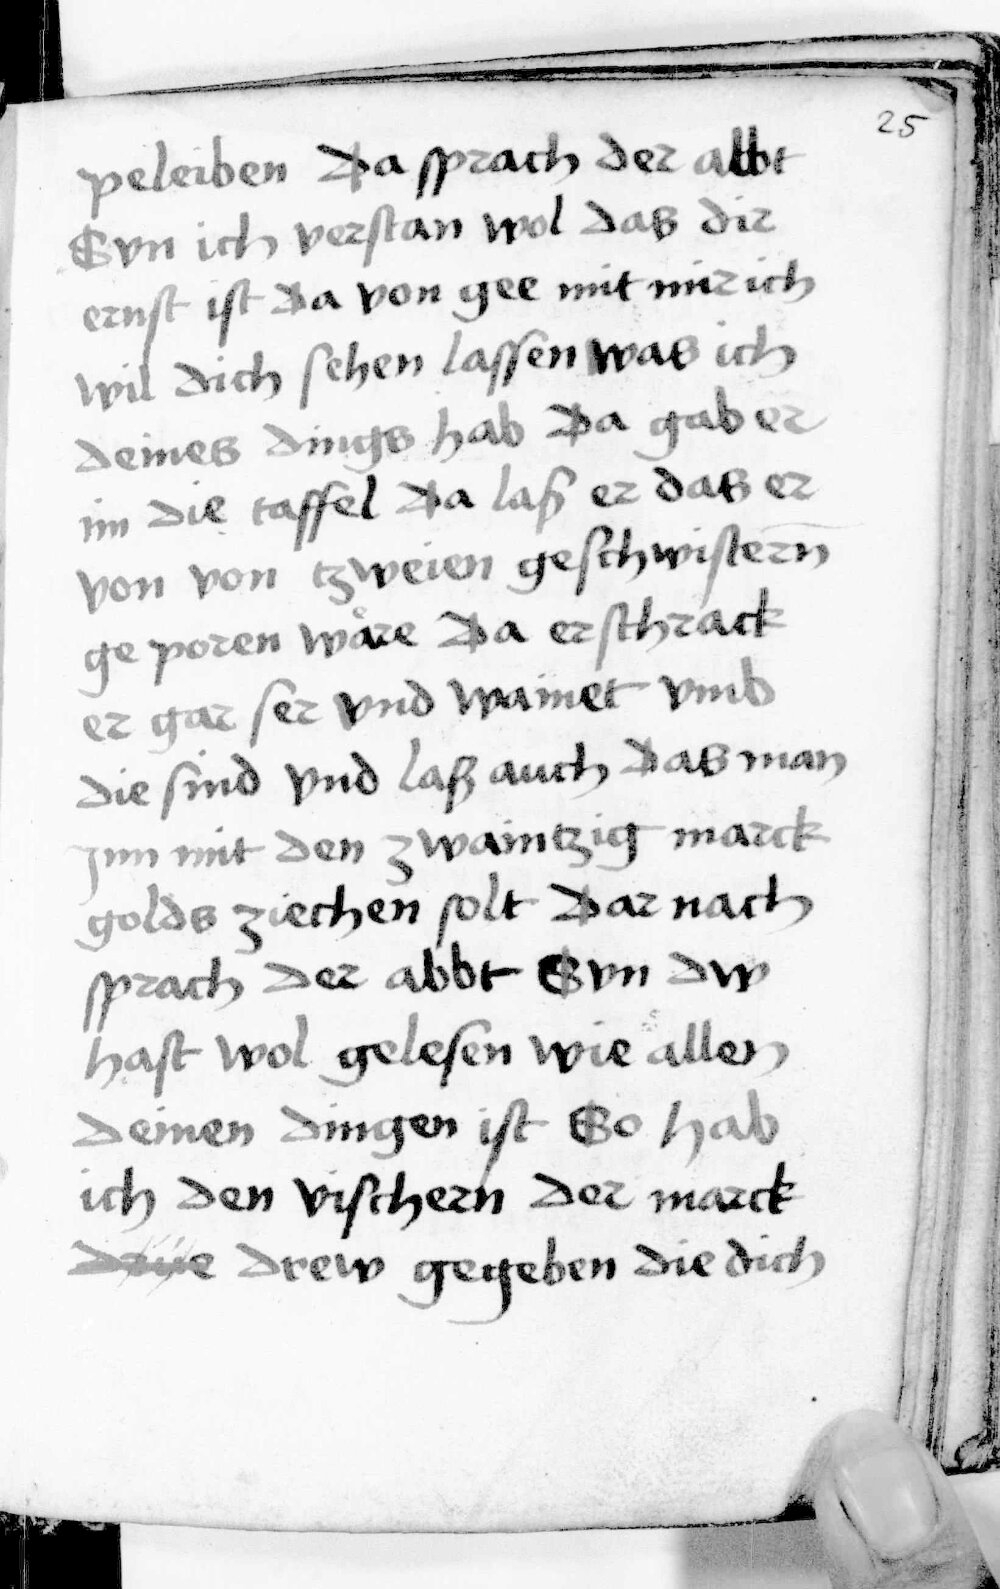 25
peleiben Da sprach der abbt
Svn ich verstan wol das dir
ernst ist Da von gee mit mir ich
wil dich sehen lassen was ich
deines dings hab Da gab er
im die taffel Da laß er das er
von von tzweien geschwistern̄
ge poren wåre Da erschrack
er gar ser vnd wainet vmb
die sind vnd laß auch Das man
Jnn mit den zwaintzig marck
golds ziechen solt Dar nach
sprach der abbt Svn dw
hast wol gelesen wie allen
deinen dingen ist So hab
ich den vischern der marck
drew gegeben die dich